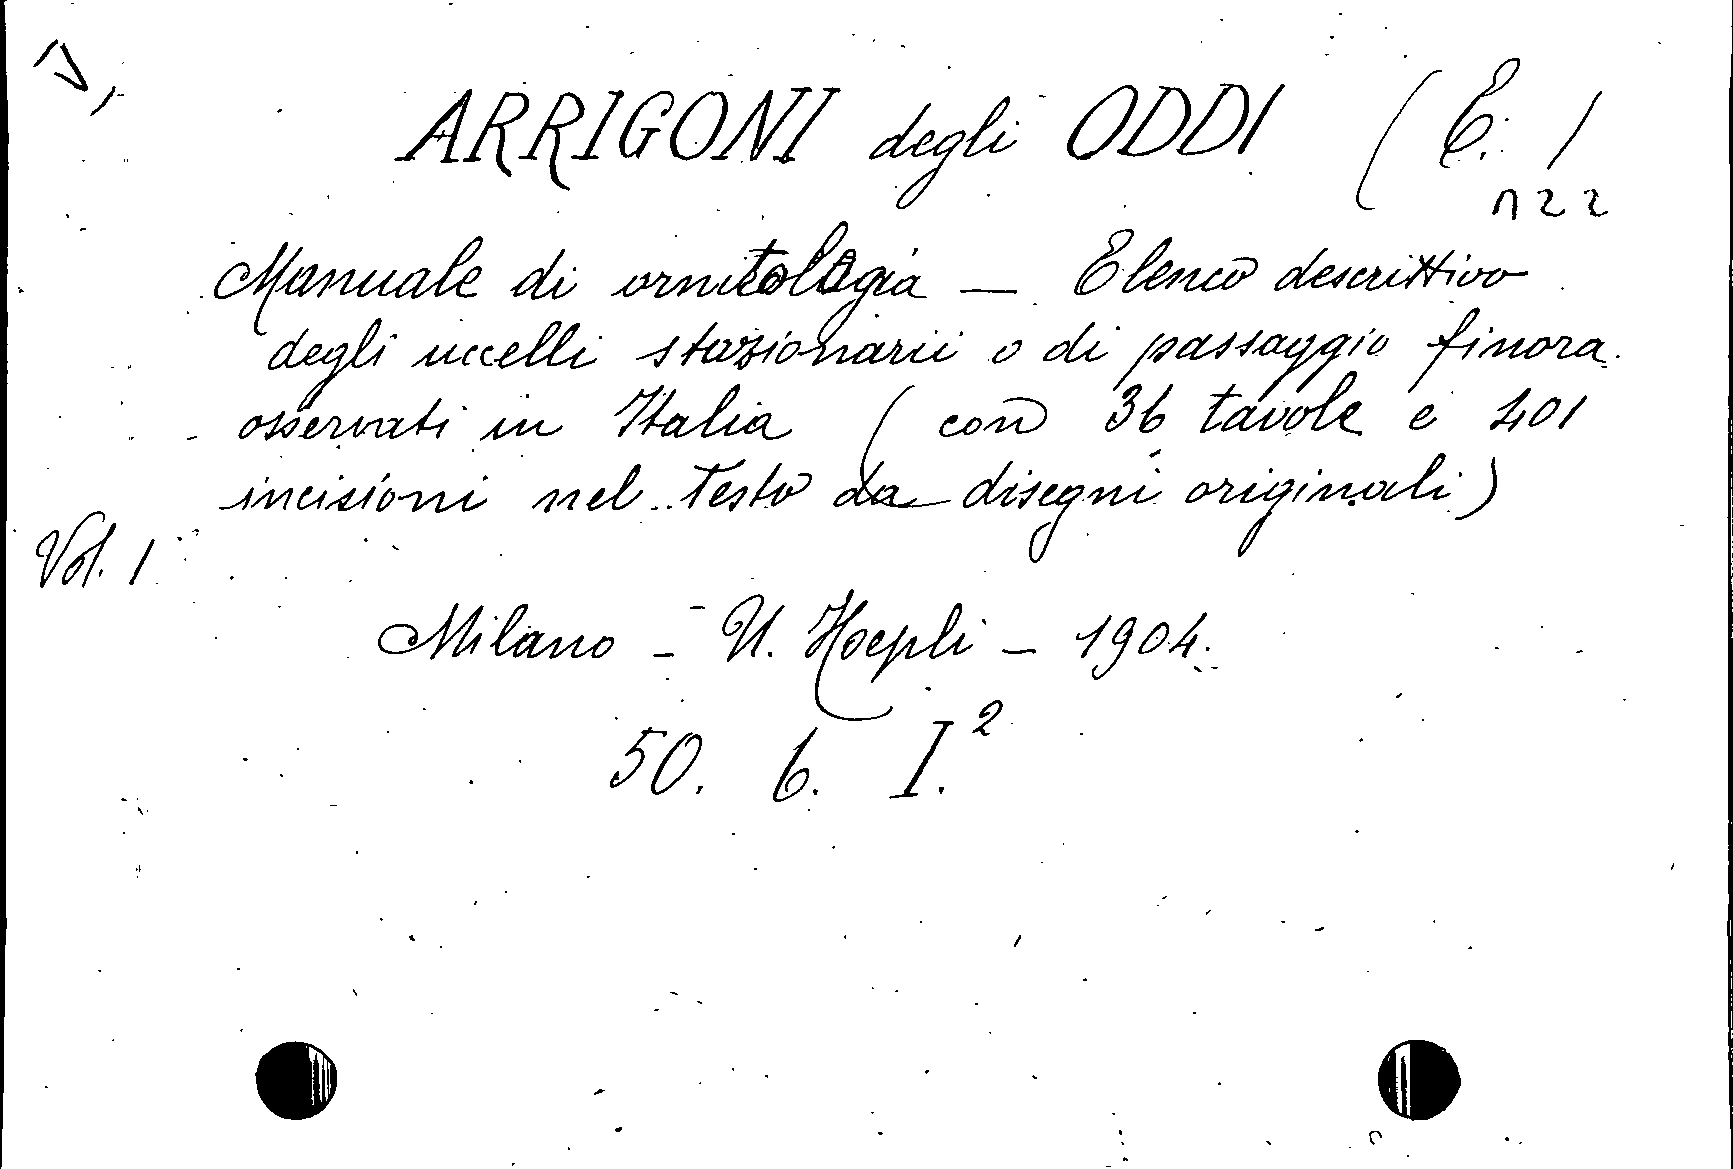 ARRIGONI degli ODDI (E. /
n 2 2
Manuale di ornitologia — Elenco descrittivo
degli uccelli stazionarii o di passaggio finora
osservati in Italia (con 36 tavole e 401
incisioni nel testo da disegni originali)
Vol. 1
Milano - U. Hoepli - 1904.
50. 6. I.²